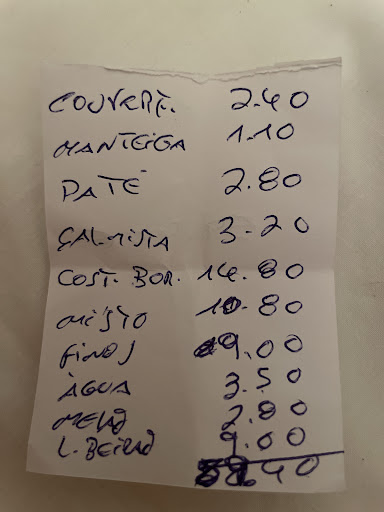 COUVERT. 2.40
MANTEIGA 1.10
PATÉ 2.80
SAL.MISTA 3.20
COST. BOR. 14.80
MISTO 10.80
FINOS 9.00
ÀGUA 3.50
MELÃO 2.80
L. BEIRÃO 9.00